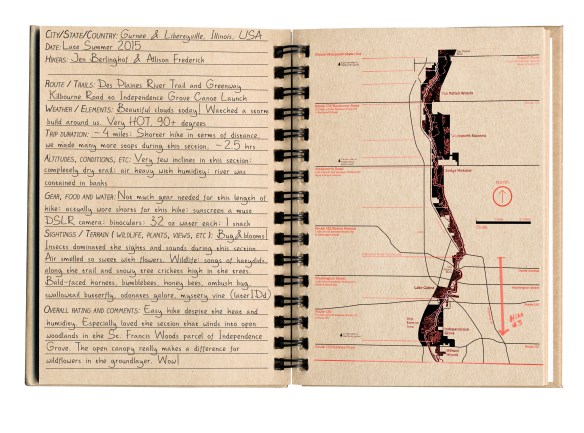 City/State/Country: Gurnee & Libertyville, Illinois, USA
Date: Late Summer 2015
Hikers: Jen Berlinghof & Allison Frederick
Route / Trails: Des Plaines River Trail and Greenway
Kilbourne Road to Independence Grove Canoe Launch
Weather / Elements: Beautiful clouds today! Watched a storm
build around us. Very HOT, 90+ degrees
Trip duration: ~4 miles: Shorter hike in terms of distance,
we made many more stops during this section. ~2.5 hrs
Altitudes, conditions, etc: Very few inclines in this section:
completely dry trail: air heavy with humidity: river was
contained in banks
Gear, food and water: Not much gear needed for this length of
hike: actually wore shorts for this hike: sunscreen a must
DSLR camera: binoculars: 32 oz water each: 1 snack
Sightings / Terrain (wildlife, plants, views, etc): Bug & blooms!
Insects dominated the sights and sounds during this section.
Air smelled so sweet with flowers. Wildlife: songs of katydids
along the trail and snowy tree crickets high in the trees.
Bald-faced hornets, bumblebees, honey bees, ambush bug
swallowtail butterfly, odonates galore, mystery vine (later IDd)
Overall rating and comments: Easy hike despite the heat and
humidity. Especially loved the section that winds into open
woodlands in the St. Francis Woods parcel of Independence
Grove. The open canopy really makes a difference for
wildflowers in the groundlayer. Wow!
Van Patten Woods
Wadsworth Savanna
Sedge Meadow
North
Scale
Lake Carina
Independence
Grove
Hike
#3